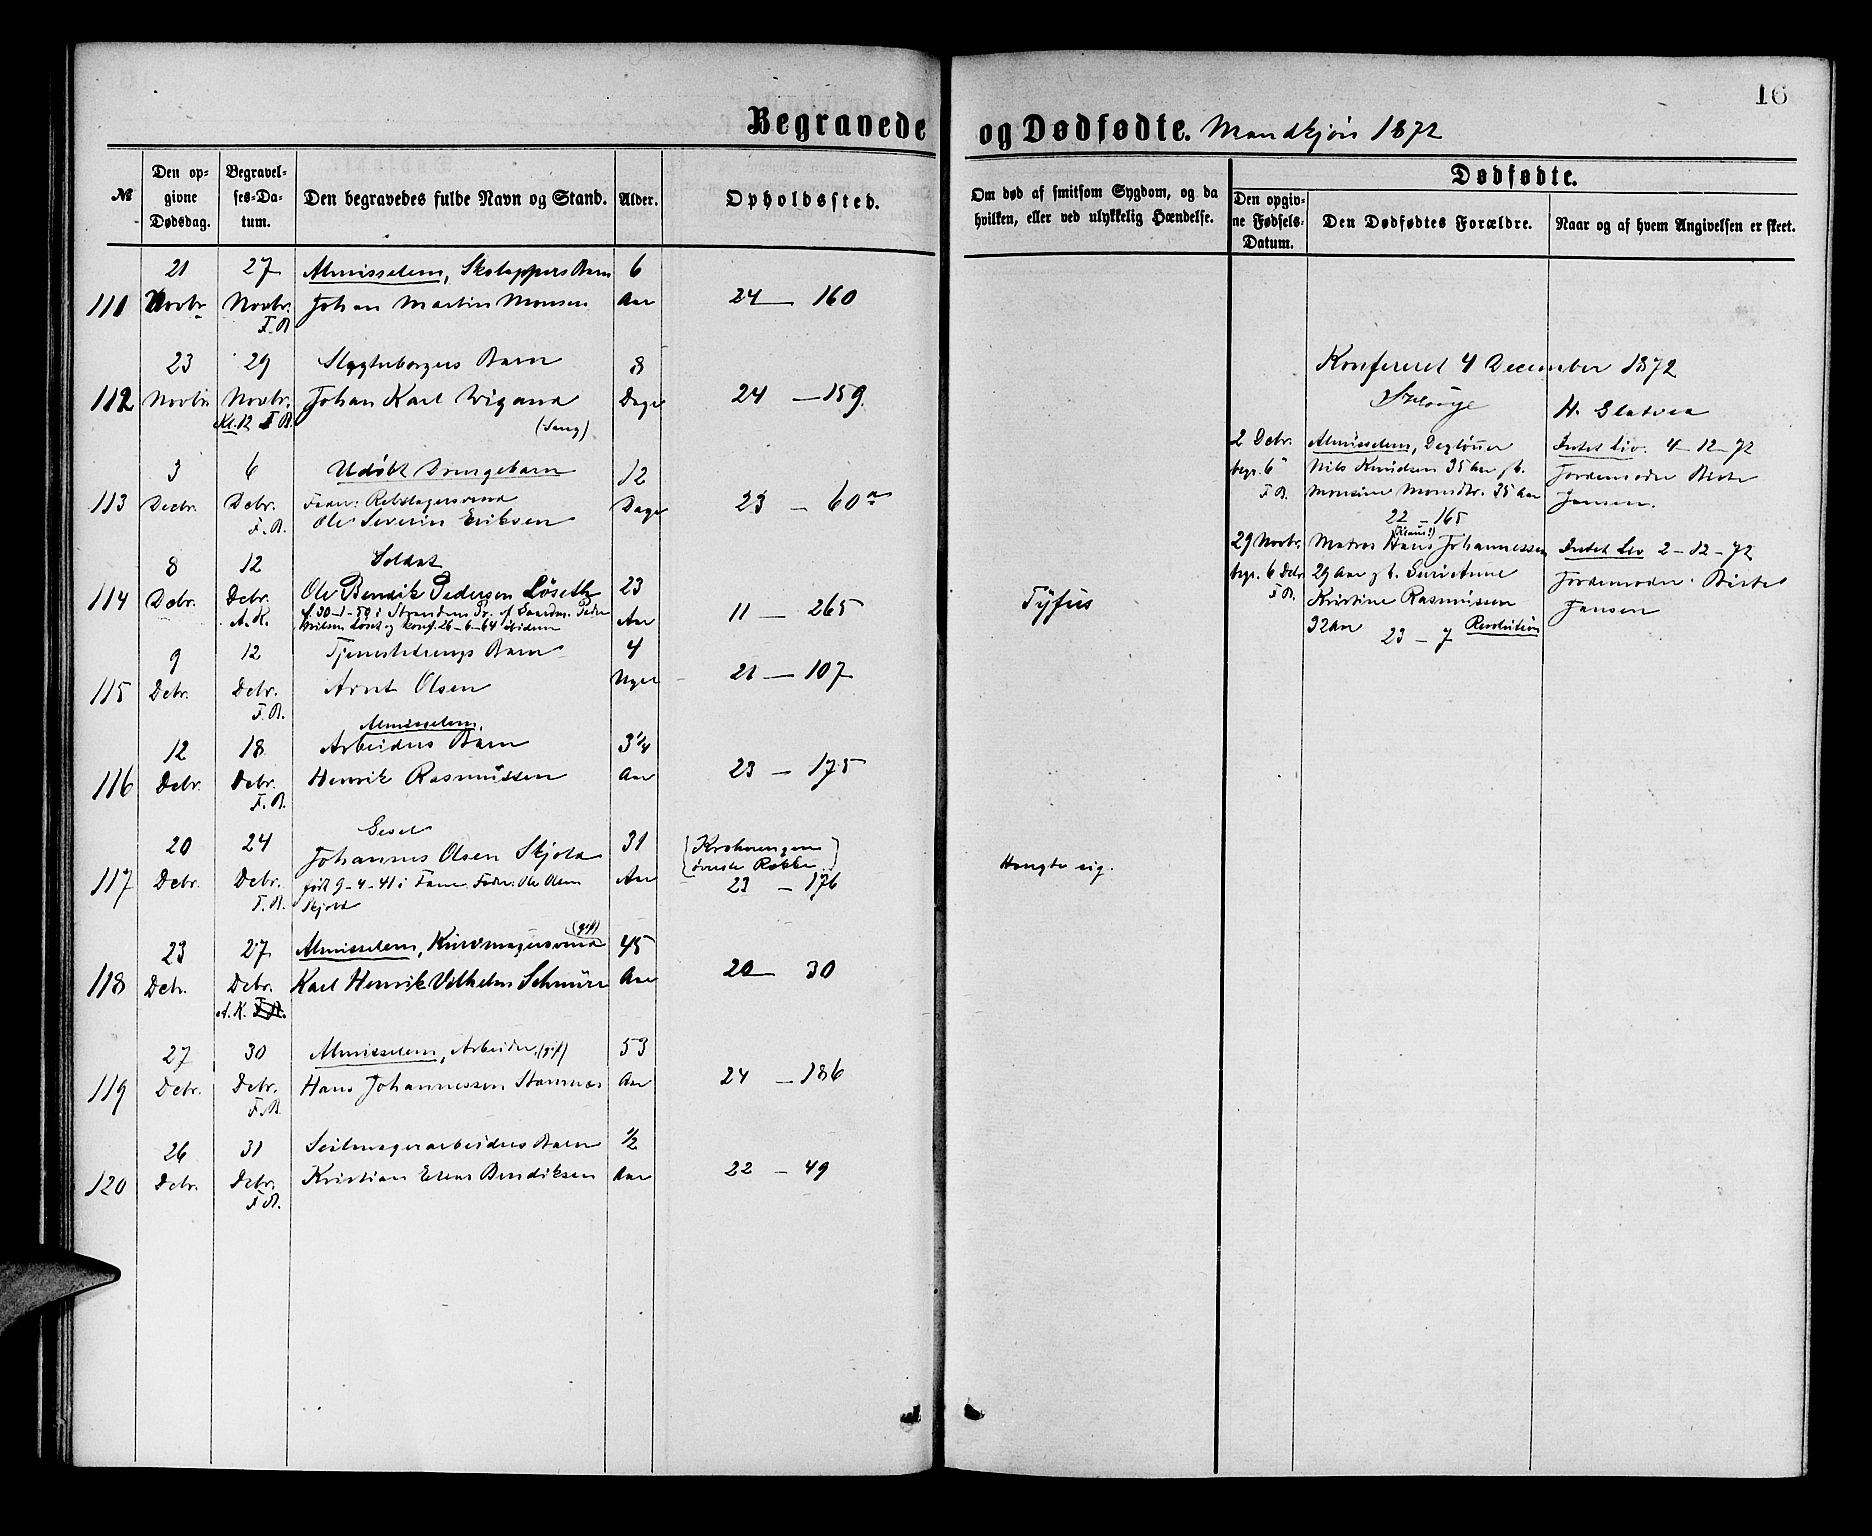 16
Begravede og Dødfødte. Mandkjøn 1872
№
Den opgivne Dødsdag.
Begravelses-Datum.
Den begravedes fulde Navn og Stand.
Alder.
Opholdssted.
Om død af smitsom Sygdom, og da hvilken, eller ved ulykkelig Hændelse.
Dødfødte.
Den opgivne Fødsels-Datum.
Den Dødfødtes Forældre.
Naar og af hvem Angivelsen er skeet.
21 27 Almisselem, Skolappers Barn 6
111 Novbr. Novbr. Johan Martin Monsen Aar 24 — 160
F.B.
23 29 Barn 8
112 Novbr. Novbr. Johan Karl Wigand Dage 24 — 159.
Kl. 12 F.B. (Sang)
3 6 Udøbt Drengebarn 12
113 Decbr. Debr. Fader: Rebslagersvend Dage 23 — 60a
F.B. Ole Severin Eriksen
8 12 Soldat
114 Debr. Debr. Ole Bendik Pedersen Løseth 23 11 — 265 Tÿfus
A.K. f. 30-1-50 i Strandens Pr. af Gaardm. Peder Aar
Løset og konf. 26-6-64 ibidem
9 12 Tjenestedrengs Barn 4
115 Debr. Debr. Arnt Olsen Uger 21 — 107
F.B.
Almisselem,
12 18 Arbeiders Barn 3 1/4
116 Debr. Debr. Henrik Rasmussen Aar 23 — 175
F.B.
Gesel
20 24 Johannes Olsen Skjold 31 (Krohavngen
117 Debr. Debr. født 9-4-41 i Fane. Fader: Ole Olsen Aar øverste Række) Hængte sig.
F.B. Skjold 23 — 176
(gift)
23 27 Almisselem, 45
118 Debr. Debr. Karl Henrik Vilhelm Schnürr Aar 20 — 30
A.K. F.B.
27 30 Almisselem, Arbeider (gift) 53
119 Debr. Debr. Hans Johannessen Stamnæs Aar 24 — 186
F.B.
26 31 Seilmagerarbeiders Barn 1/2
120 Debr. Debr. Kristian Bendiksen Aar 22 — 49
F.B.
Konfereret 4 December 1872
H.
2 Debr. Almisselem, Intet Liv. 4-12-72
begr. 6" Nils Knudsen 35 Aar g. t. Jordemoder
F.B. Monsine Monsdtr. 35 Aar Jansen.
22 — 165
(Klaus!)
29 Novbr. Matros Hans Johannessen Intet Liv 2-12-72
begr. 6 Debr 29 Aar g. t. Jordemoder
F.B. Kristine Rasmussen Jansen
32 Aar 23 — 7 Revolution